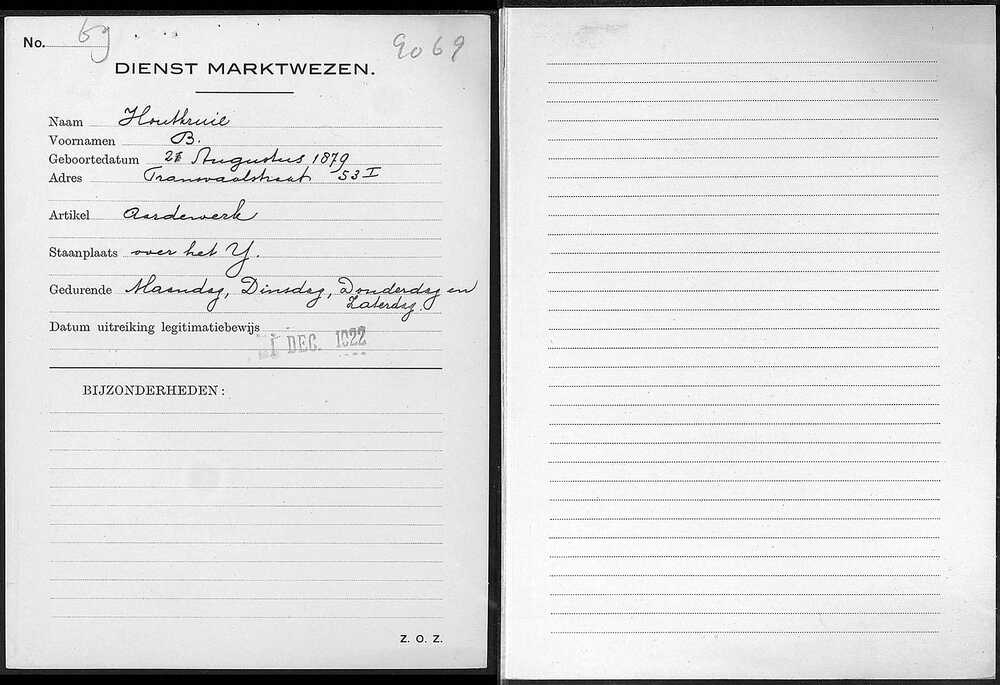 No. 69
9069
DIENST MARKTWEZEN.
Naam Houtkruil
Voornamen B.
Geboortedatum Augustus 1879
Adres Transvaalstraat 53 I
Artikel Aardewerk
Staanplaats over het Y.
Gedurende Maandag, Dinsdag, Donderdag en
Zaterdag.
Datum uitreiking legitimatiebewijs
1 DEC. 1922
BIJZONDERHEDEN:
Z. O. Z.